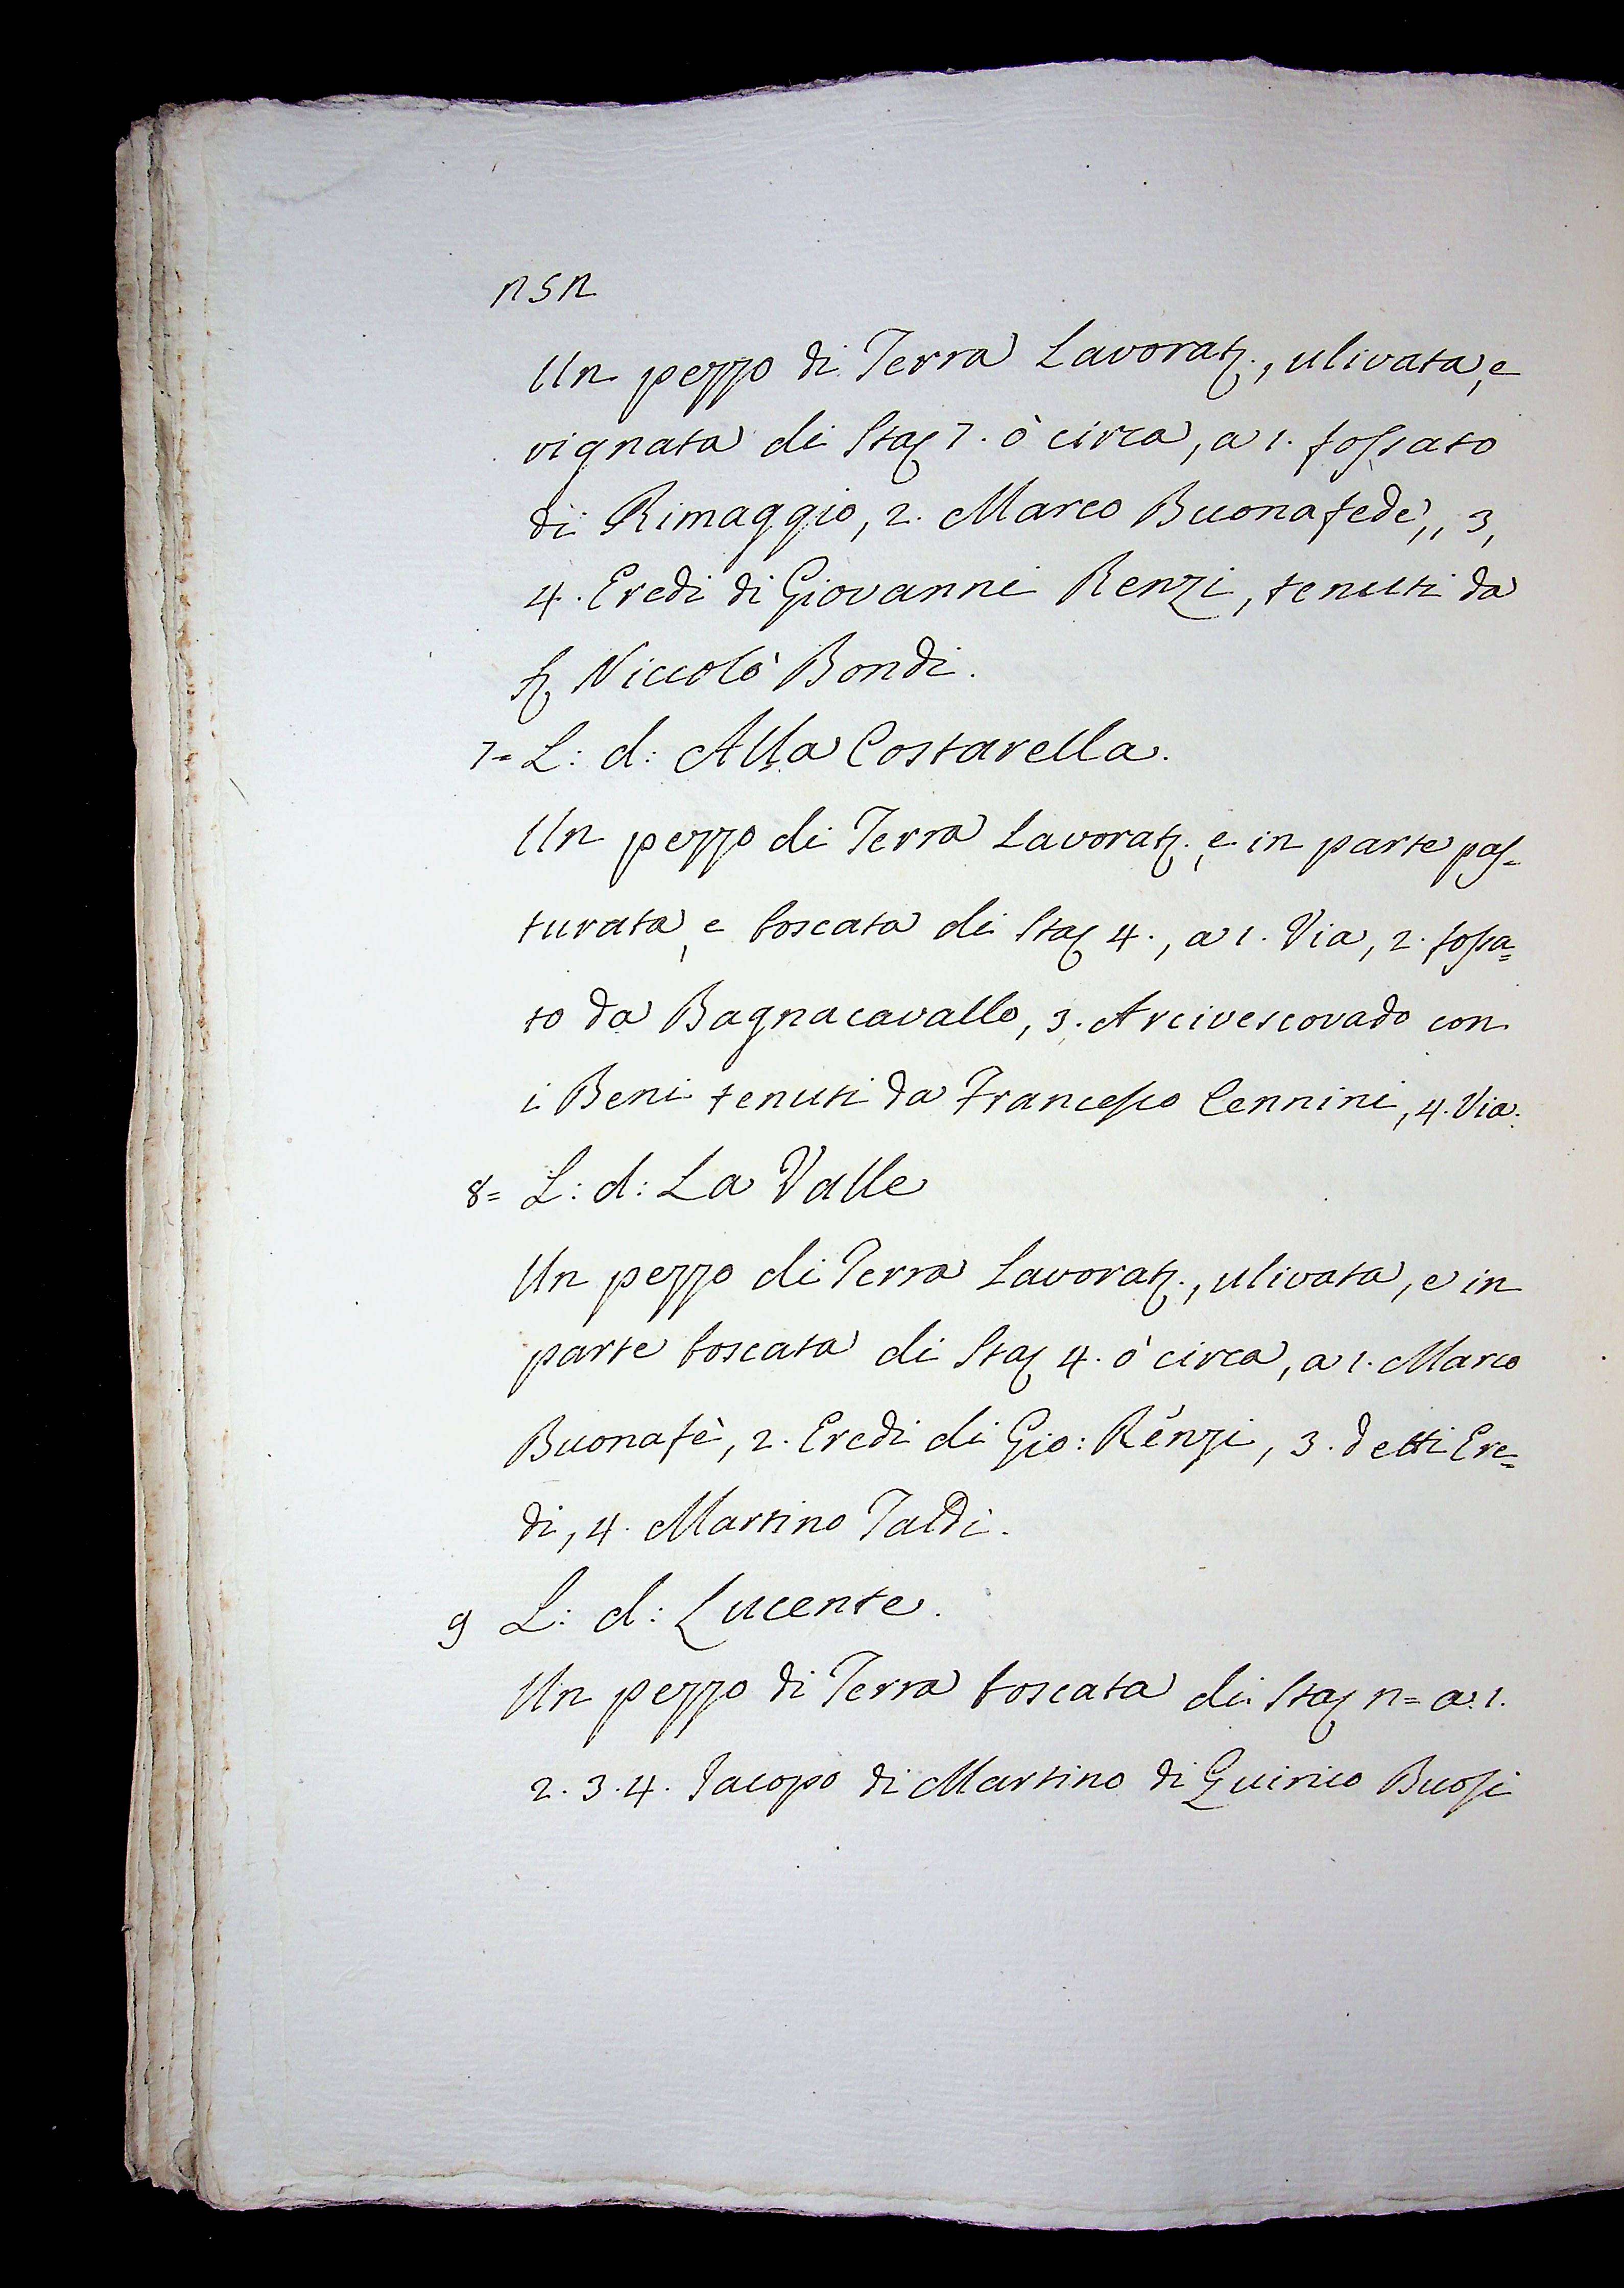 n5n
Un pezzo di Terra Lavorat:, ulivata, e
vignata di Sta: 7. ò circa, a 1. fossato
di Rimaggio, 2. Marco Buonafede, 3,
4. Eredi di Giovanni Renzi, tenuti da
Niccolò Bondi.
7= L: d: Alla Costarella.
Un pezzo di Terra Lavorat:, e in parte pas-
turata, e boscata di Sta: 4., a 1. Via, 2. fossa=
to da Bagnacavallo, 3. Arcivescovado con
i Beni tenuti da Francesco Cennini, 4. Via.
8= L: d: La Valle
Un pezzo di Terra Lavorat:, ulivata, e in
parte boscata di Sta: 4. ò circa, a 1. Marco
Buonafè, 2. Eredi di Gio: Renzi, 3. detti Ere=
di, 4. Martino Taddi.
9 L: d: Lucente.
Un pezzo di Terra boscata di Sta: n= a 1.
2. 3. 4. Jacopo di Martino di Quirico Buosi